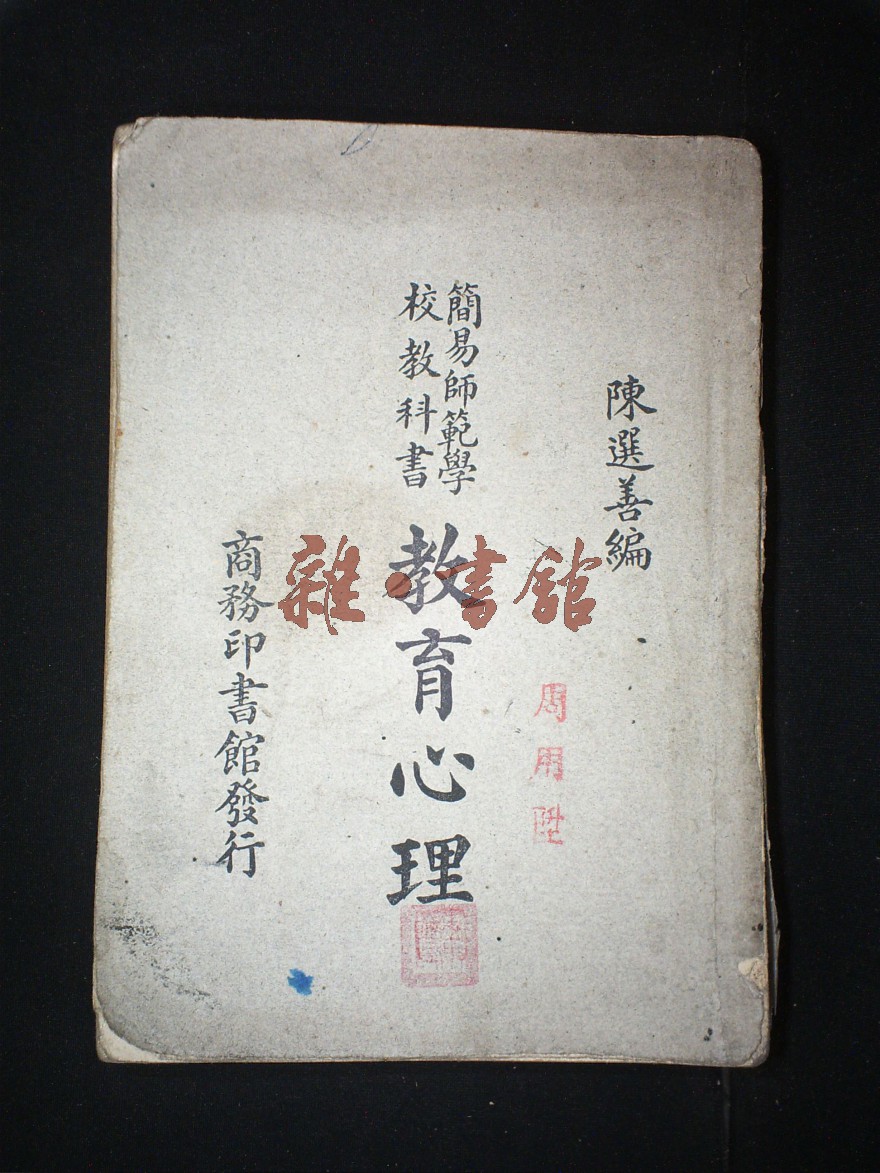 陳選善編
簡易師範學
校教科書
教育心理
商務印書館發行
周用陞
雜·書館